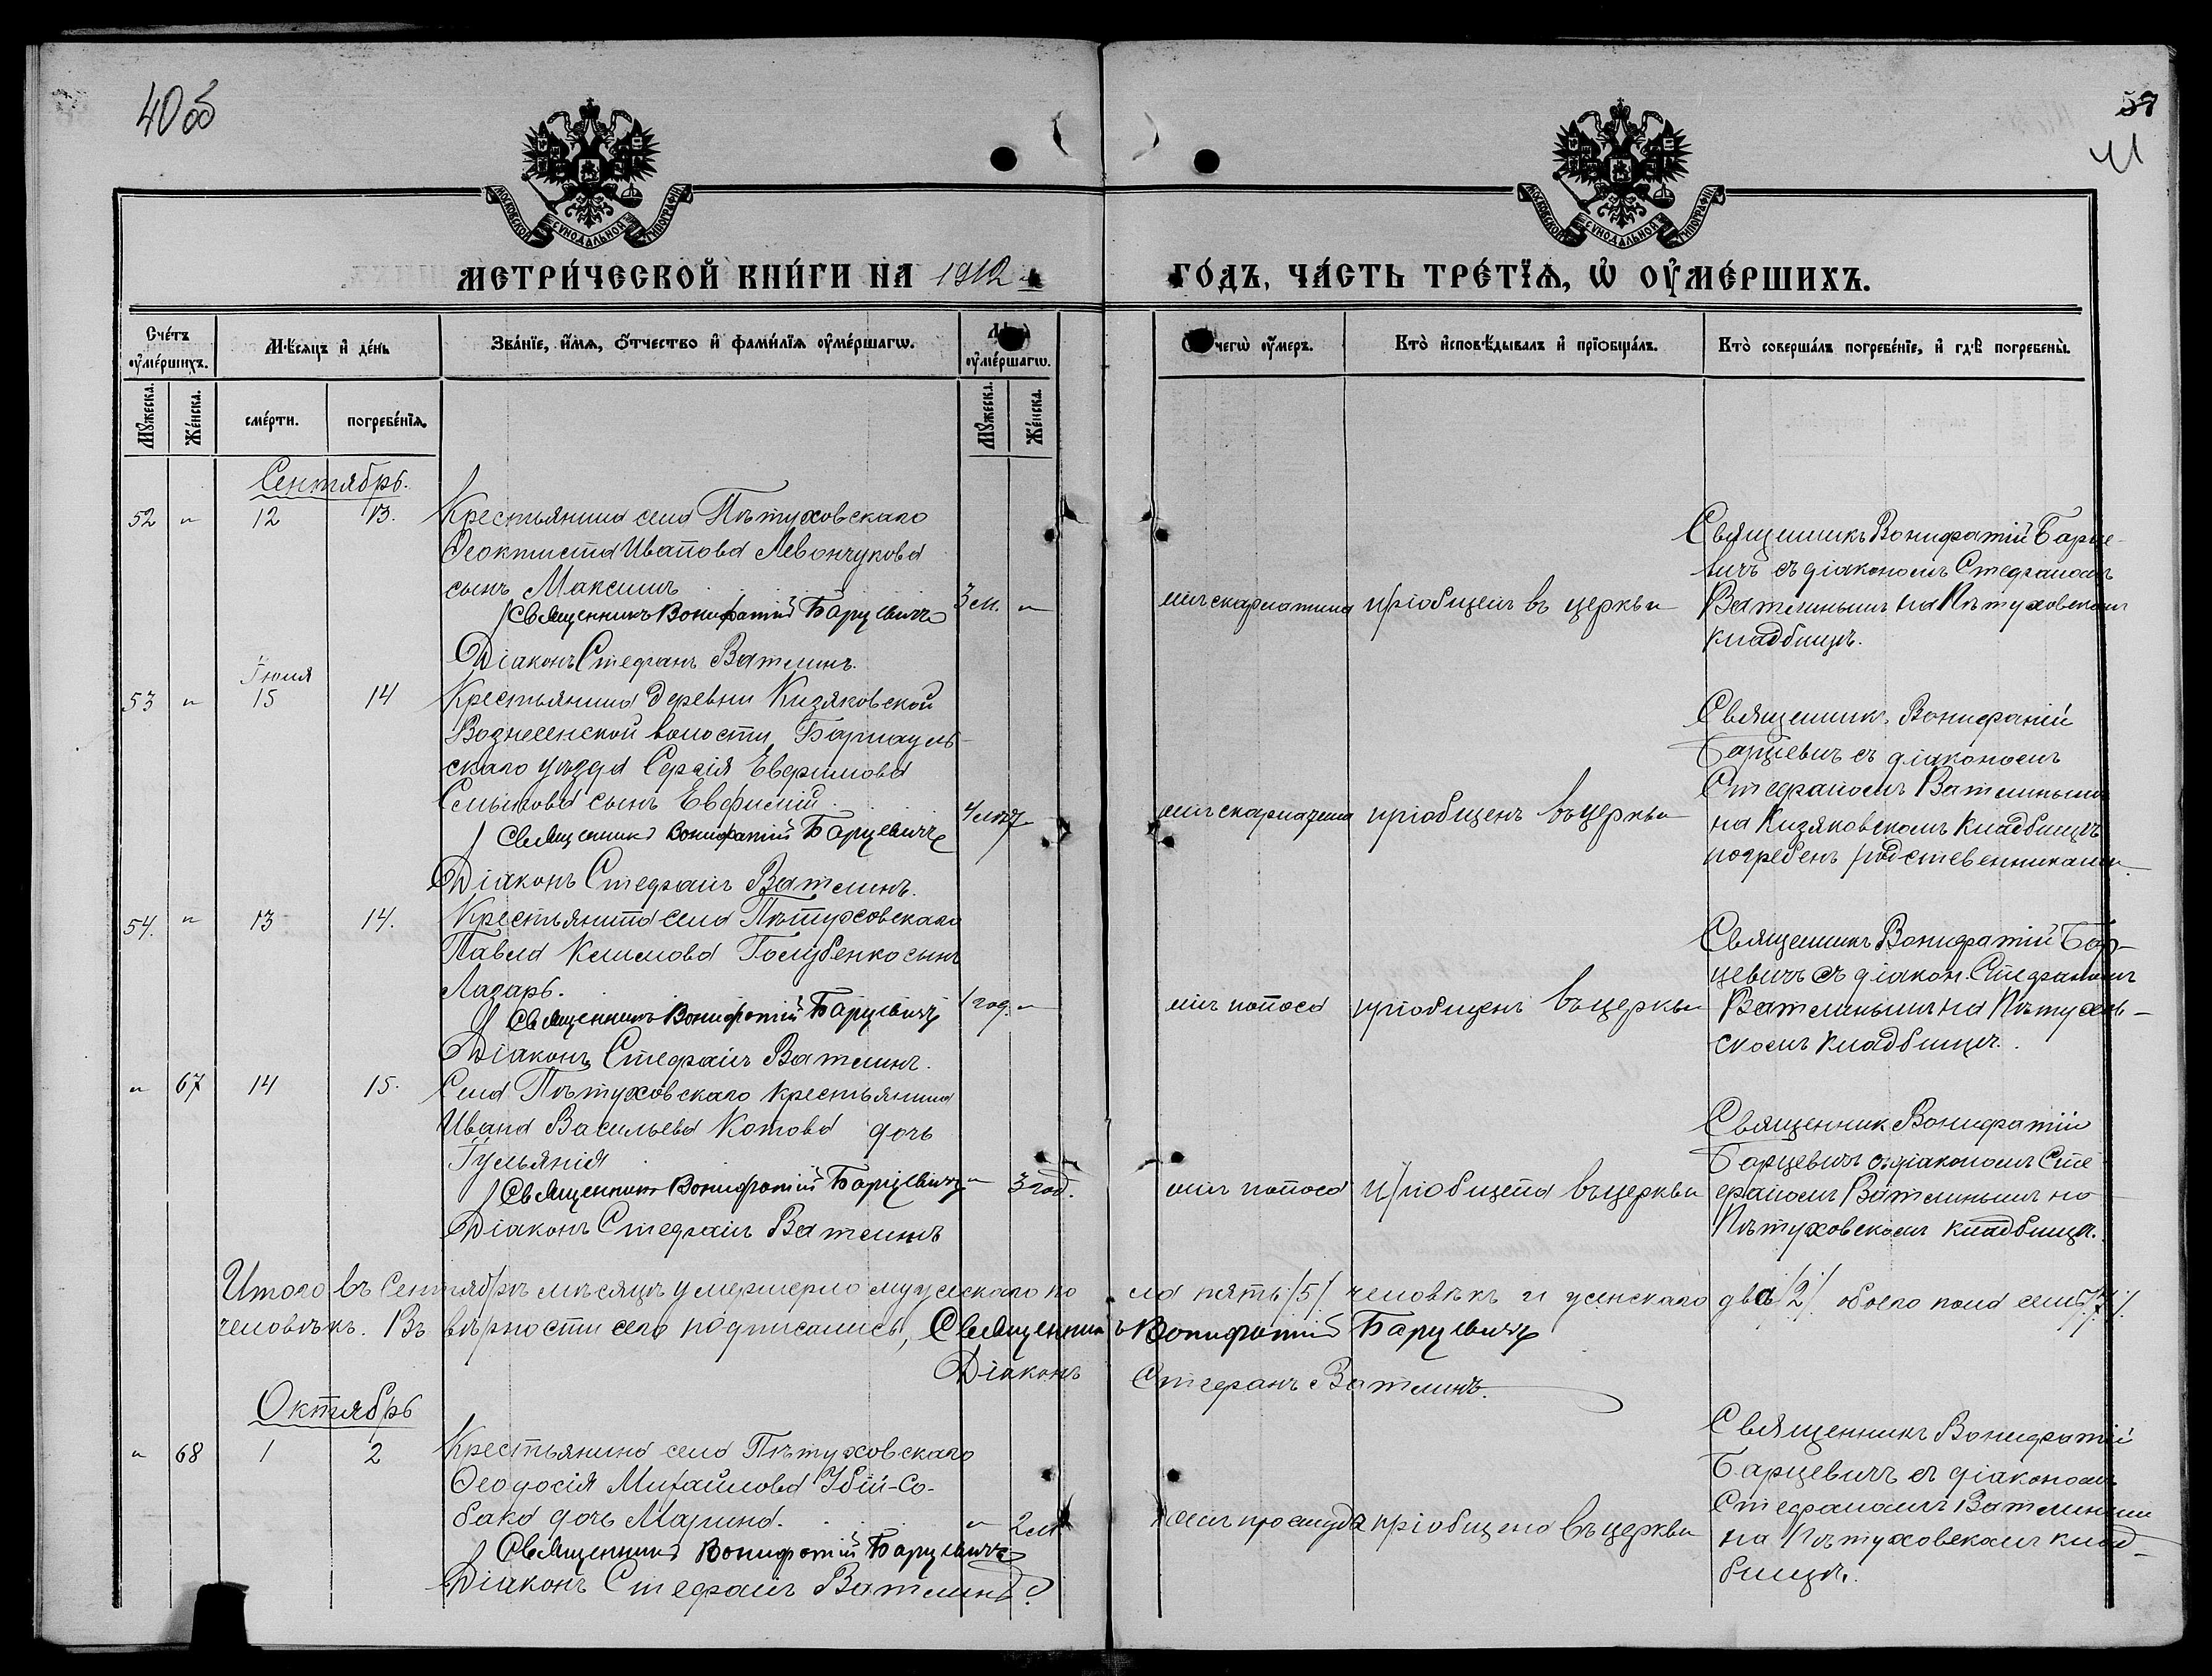 40об
57
41
МОСКОВСКОЙ СѴНОДАЛЬНОЙ ТИПОГРАФІИ
МОСКОВСКОЙ СѴНОДАЛЬНОЙ ТИПОГРАФІИ
МЕТРИ́ЧЕСКОЙ КНИ́ГИ НА 1912
ГО́ДЪ, ЧА́СТЬ ТРЕ́ТЇѦ, Ѡ҆ ОУ҆МЕ́РШИХЪ.
Сче́тъ оу҆ме́ршихъ.
Мѣ́сѧцъ и҆ де́нь
Зва́нїе, и҆́мѧ, ѻ҆́тчество и҆ фами́лїѧ оу҆ме́ршагѡ.
оу҆ме́ршагѡ.
чегѡ̀ оу҆́меръ.
Кто̀ и҆сповѣ́дывалъ и҆ прїѡбща́лъ.
Кто̀ соверша́лъ погребе́нїе, и҆ гдѣ̀ погребены̀.
Мꙋ́жеска.
Же́нска.
сме́рти.
погребе́нїѧ.
Мꙋ́жеска.
Же́нска.
Сентябрь.
52 " 12 13. Крестьянина села Пѣтуховскаго
Ѳеоктиста Иванова Левончукова
сынъ Максимъ
3 м. "
Священникъ Вонифатій Барцевичъ
Діаконъ Стефанъ Ватлинъ.
отъ скарлатина
пріобщенъ въ церкви
Священникъ Вонифатій Барце-
вичъ съ діакономъ Стефаномъ
Ватлинымъ на Пѣтуховскомъ
кладбищѣ.
Іюля
53 " 15 14 Крестьянина деревни Кизяковской
Вознесенской волости, Барнауль-
скаго уѣзда Сергія Евфимова
сынъ Евфимій
4 лѣт
Священникъ Вонифатій Барцевичъ
Діаконъ Стефанъ Ватлинъ.
отъ скарлатина
пріобщенъ въ церкви
Священникъ Вонифатій
Барцевичъ съ діакономъ
Стефаномъ Ватлинымъ
на Кизяковскомъ кладбищѣ
погребенъ родственниками.
54. " 13 14. Крестьянина села Пѣтуховскаго
Павла Климова Голубенко сынъ
Лазарь.
1 год. "
Священникъ Вонифатій Барцевичъ
Діаконъ Стефанъ Ватлинъ.
отъ поноса
пріобщенъ въ церкви
Священникъ Вонифатій Бар-
цевичъ съ діакон. Стефаномъ
Ватлинымъ на Пѣтухов-
скомъ кладбищѣ.
" 67 14 15. Села Пѣтуховскаго крестьянина
Ивана Васильева Котова дочь
Іульянія
" 3 год.
Священникъ Вонифатій Барцевичъ
Діаконъ Стефанъ Ватлинъ
отъ поноса
пріобщена въ церкви
Священник Вонифатій
Барцевичъ съ діакономъ Сте
фаномъ Ватлинымъ на
Пѣтуховскомъ кладбищѣ.
Итого въ Сентябрѣ мѣсяцѣ умершего мужескаго по ла пять /5/ человѣкъ и женскаго два /2/ обоего пола семь /7/
человѣкъ. Въ вѣрности сего подписались, Священникъ Вонифатій Барцевичъ
Діаконъ Стефанъ Ватлинъ.
Октябрь
" 68 1 2 Крестьянина села Пѣтуховскаго
Ѳеодосія Михайлова Убій-Со-
бака дочь Марина.
" 2 м
Священникъ Вонифатій Барцевичъ
Діаконъ Стефанъ Ватлинъ.
отъ простуда
пріобщена въ церкви
Священникъ Вонифатій
Барцевичъ съ діакономъ
Стефаномъ Ватлинымъ
на Пѣтуховскомъ клад-
бищѣ.